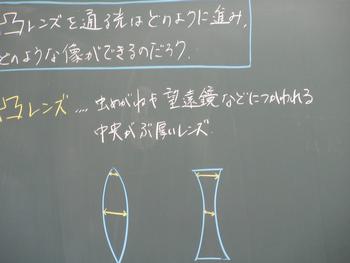 凸レンズを通る光はどのように進み、
どのような像ができるのだろう.
凸レンズ.... 虫めがねや望遠鏡などにつかわれる
中央がぶ厚いレンズ.